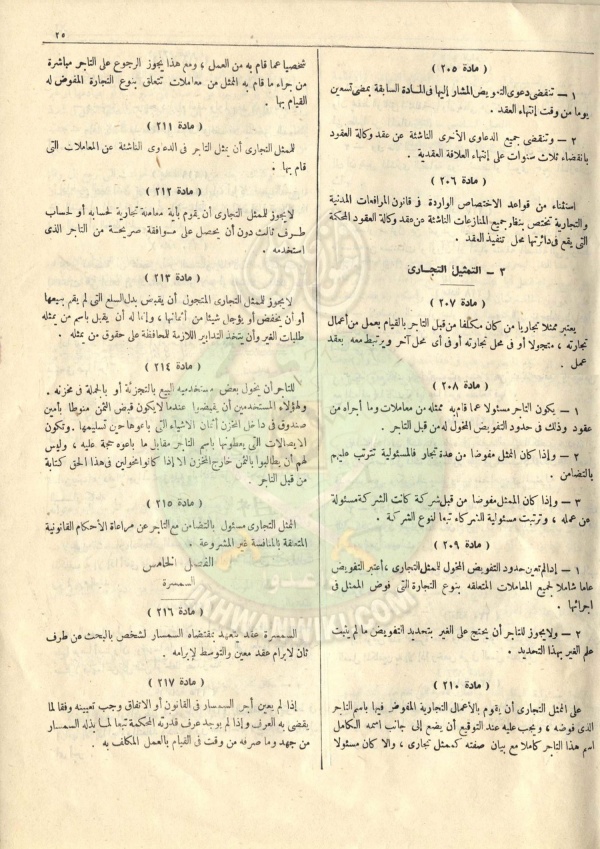 ٢٥
( مادة ٢٠٥ )
١ — تنقضى دعوى التعويض المشار إليها فى المادة السابقة بمضى تسعين
يوما من وقت إنتهاء العقد .
٢ — وتنقضى جميع الدعاوى الأخرى الناشئة عن عقد وكالة العقود
بانقضاء ثلاث سنوات على إنتهاء العلاقة العقدية .
( مادة ٢٠٦ )
استثناء من قواعد الاختصاص الواردة فى قانون المرافعات المدنية
والتجارية تختص بنظر جميع المنازعات الناشئة عن عقد وكالة العقود المحكمة
التى يقع فى دائرتها محل تنفيذ العقد .
٣ — التمثيل التجارى
( مادة ٢٠٧ )
يعتبر ممثلا تجاريا من كان مكلفا من قبل التاجر بالقيام بعمل من أعمال
تجارته ، متجولا أو فى محل تجارته أو فى أى محل آخر ويرتبط معه بعقد
عمل .
( مادة ٢٠٨ )
١ — يكون التاجر مسئولا عما قام به ممثله من معاملات وما أجراه من
عقود وذلك فى حدود التفويض المخول له من قبل التاجر .
٢ — وإذا كان الممثل مفوضا من عدة تجار فالمسئولية تترتب عليهم
بالتضامن .
٣ — وإذا كان الممثل مفوضا من قبل شركة كانت الشركة مسئولة
عن عمله ، وترتبت مسئولية الشركاء تبعا لنوع الشركة .
( مادة ٢٠٩ )
١ — إذا لم تعين حدود التفويض المخول للممثل التجارى ، أعتبر التفويض
عاما شاملا لجميع المعاملات المتعلقه بنوع التجارة التى فوض الممثل فى
اجرائها .
٢ — ولا يجوز للتاجر أن يحتج على الغير بتحديد التفويض ما لم يثبت
علم الغير بهذا التحديد .
( مادة ٢١٠ )
على الممثل التجارى أن يقوم بالأعمال التجارية المفوض فيها باسم التاجر
الذى فوضه ، ويجب عليه عند التوقيع أن يضع إلى جانب اسمه الكامل
اسم هذا التاجر كاملا مع بيان صفته كممثل تجارى ، والا كان مسئولا
شخصيا عما قام به من العمل ، ومع هذا يجوز الرجوع على التاجر مباشرة
من جراء ما قام به الممثل من معاملات تتعلق بنوع التجارة المفوض له
القيام بها .
( مادة ٢١١ )
للممثل التجارى أن يمثل التاجر فى الدعاوى الناشئة عن المعاملات التى
قام بها .
( مادة ٢١٢ )
لا يجوز للممثل التجارى أن يقوم بأية معاملة تجارية لحسابه أو لحساب
طرف ثالث دون أن يحصل على موافقة صريحة من التاجر الذى
استخدمه .
( مادة ٢١٣ )
لا يجوز للممثل التجارى المتجول أن يقبض بدل السلع التى لم يقم ببيعها
أو أن يخفض أو يؤجل شيئا من أثمانها ، وإنما له أن يقبل باسم من يمثله
طلبات الغير وأن يتخذ التدابير اللازمة للمحافظة على حقوق من يمثله .
( مادة ٢١٤ )
للتاجر أن يخول بعض مستخدميه البيع بالتجزئة أو بالجملة فى مخزنه .
ولهؤلاء المستخدمين أن يقبضوا عندما لا يكون قبض الثمن منوطا بأمين
صندوق فى داخل المخزن أثمان الاشياء التى باعوها حين تسليمها . وتكون
الايصالات التى يعطونها باسم التاجر مقابل ما باعوه حجة عليه ، وليس
لهم أن يطالبوا بالثمن خارج المخزن الا إذا كانوا مخولين فى هذا الحق كتابة
من قبل التاجر .
( مادة ٢١٥ )
الممثل التجارى مسئول بالتضامن مع التاجر عن مراعاة الأحكام القانونية
المتعلقة بالمنافسة غير المشروعة .
الفصل الخامس
السمسرة
( مادة ٢١٦ )
السمسرة عقد يتعهد بمقتضاه السمسار لشخص بالبحث عن طرف
ثان لابرام عقد معين والتوسط لإبرامه .
( مادة ٢١٧ )
إذا لم يعين أجر السمسار فى القانون أو الاتفاق وجب تعيينه وفقا لما
يقضى به العرف وإذا لم يوجد عرف قدرته المحكمة تبعا لما بذله السمسار
من جهد وما صرفه من وقت فى القيام بالعمل المكلف به .
IKHWANWIKI.COM